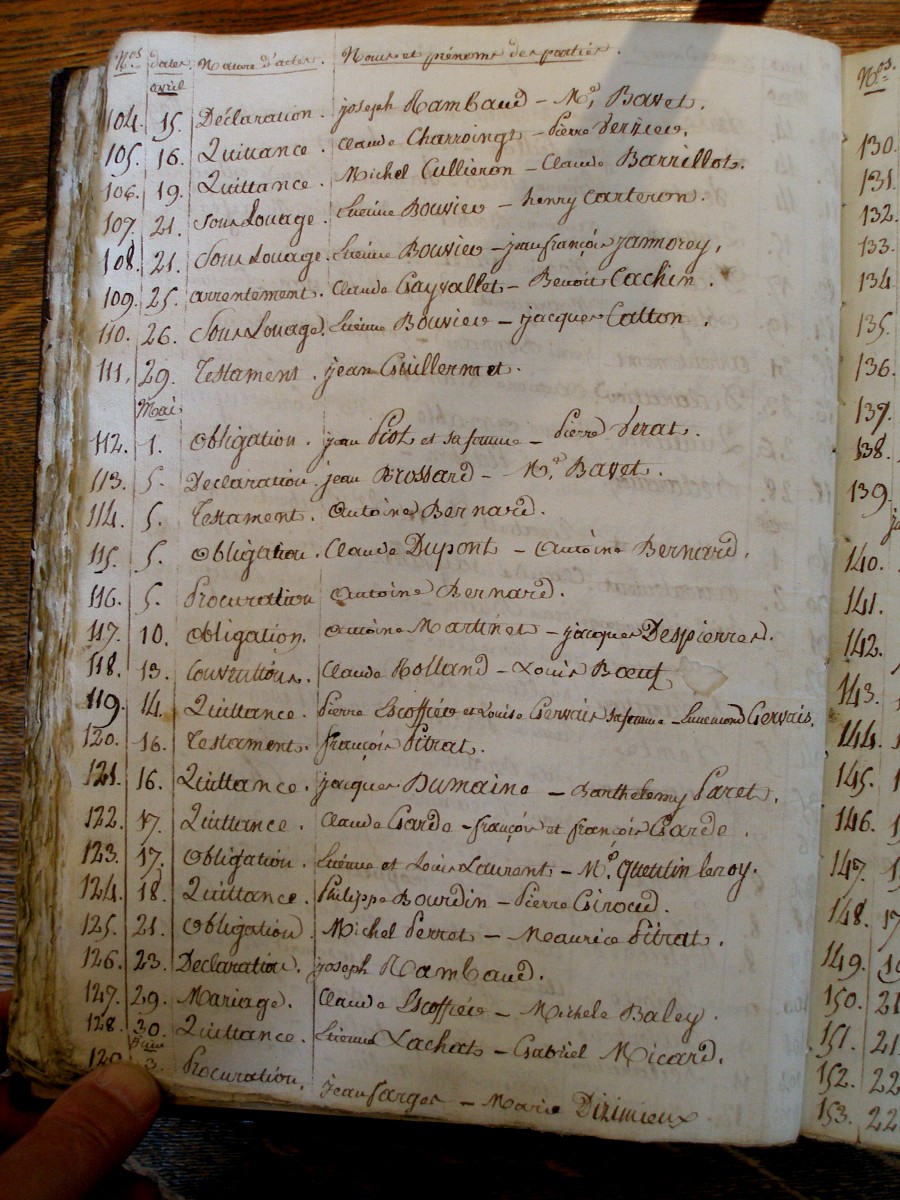 Nos. dates Nature d'actes. Noms et prénoms des parties.
avril
104. 15. Déclaration. joseph Rambaud – Mr. Bavet.
105. 16. Quittance. Claude Charroingt – Pierre Verzieu.
106. 19. Quittance. Michel Cullieron – Claude Barrillot.
107. 21. Sous Louage. Etienne Bouvier – henry Carteron.
108. 21. Sous Louage. Etienne Bouvier – jean françois jammorey.
109. 25. arrentement. Claude Gayvallet – Benoit Cachin.
110. 26. Sous Louage. Etienne Bouvier – jacques Catton.
111. 29. Testament. jean Guillermet.
Mai
112. 1. Obligation. jean Piot et sa femme – Pierre Verat.
113. 5. Declaration. jean Brossard – Mr. Bavet.
114. 5. Testament. Antoine Bernard.
115. 5. Obligation. Claude Dupont – Antoine Bernard.
116. 5. Procuration Antoine Bernard.
117. 10. Obligation. Antoine Martinet – jacques Despierres.
118. 13. Claude Rolland – Louis Bœuf
119. 14. Quittance. Pierre Escoffier et Louise Gervais sa femme – Gervais.
120. 16. Testament. françois Pitrat.
121. 16. Quittance. jacques Dumaine – Barthelemy Paret.
122. 17. Quittance. Claude Garde – françois et françois Garde.
123. 17. Obligation. Etienne et Louis Laurent – Mr. Quentin leroy.
124. 18. Quittance. Philippe Bourdin – Pierre Giroud.
125. 21. Obligation. Michel Perret – Meaurice Pitrat.
126. 23. Declaration. joseph Rambaud.
127. 29. Mariage. Claude Escoffier – Michele Baley.
128. 30. Quittance. Etienne Lachat – Gabriel Micard.
Juin
129. 3. Procuration. jean farges – Marie Dizimieux
Nos.
130.
131.
132.
133.
134.
135.
136.
137.
138.
139.
140.
141.
142.
143.
144.
145.
146.
147.
148. 17
149.
150. 21
151. 21
152. 22
153. 22